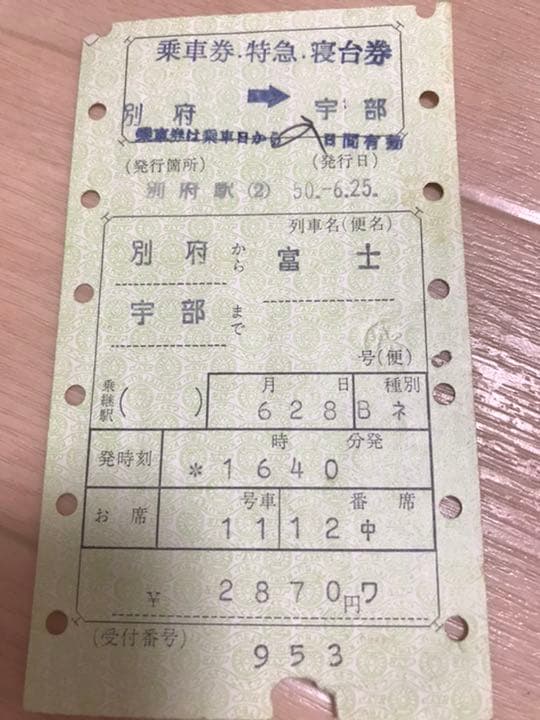 乗車券・特急・寝台券
別府 ➡ 宇部
乗車券は乗車日から 日間有効
(発行箇所) (発行日)
別府駅(2) 50.-6.25.
列車名(便名)
別府から 富士
宇部まで
号(便)
乗継駅( ) 月 日 種別
628 Bネ
発時刻 時 分発
*1640
お席 号車 番席
11 12中
¥ 2870円ワ
(受付番号)
953